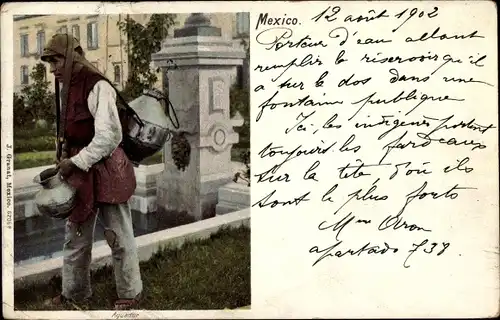 Mexico. 12 août 1902
Porteur d'eau allant
remplir le réservoir qu'il
a sur le dos dans une
fontaine publique
Ici, les indigènes portent
toujours les fardeaux
sur la tête, d'où ils
sont le plus forts
Mme Aron
apartado 738
J. Granat, Mexico.
Aguador